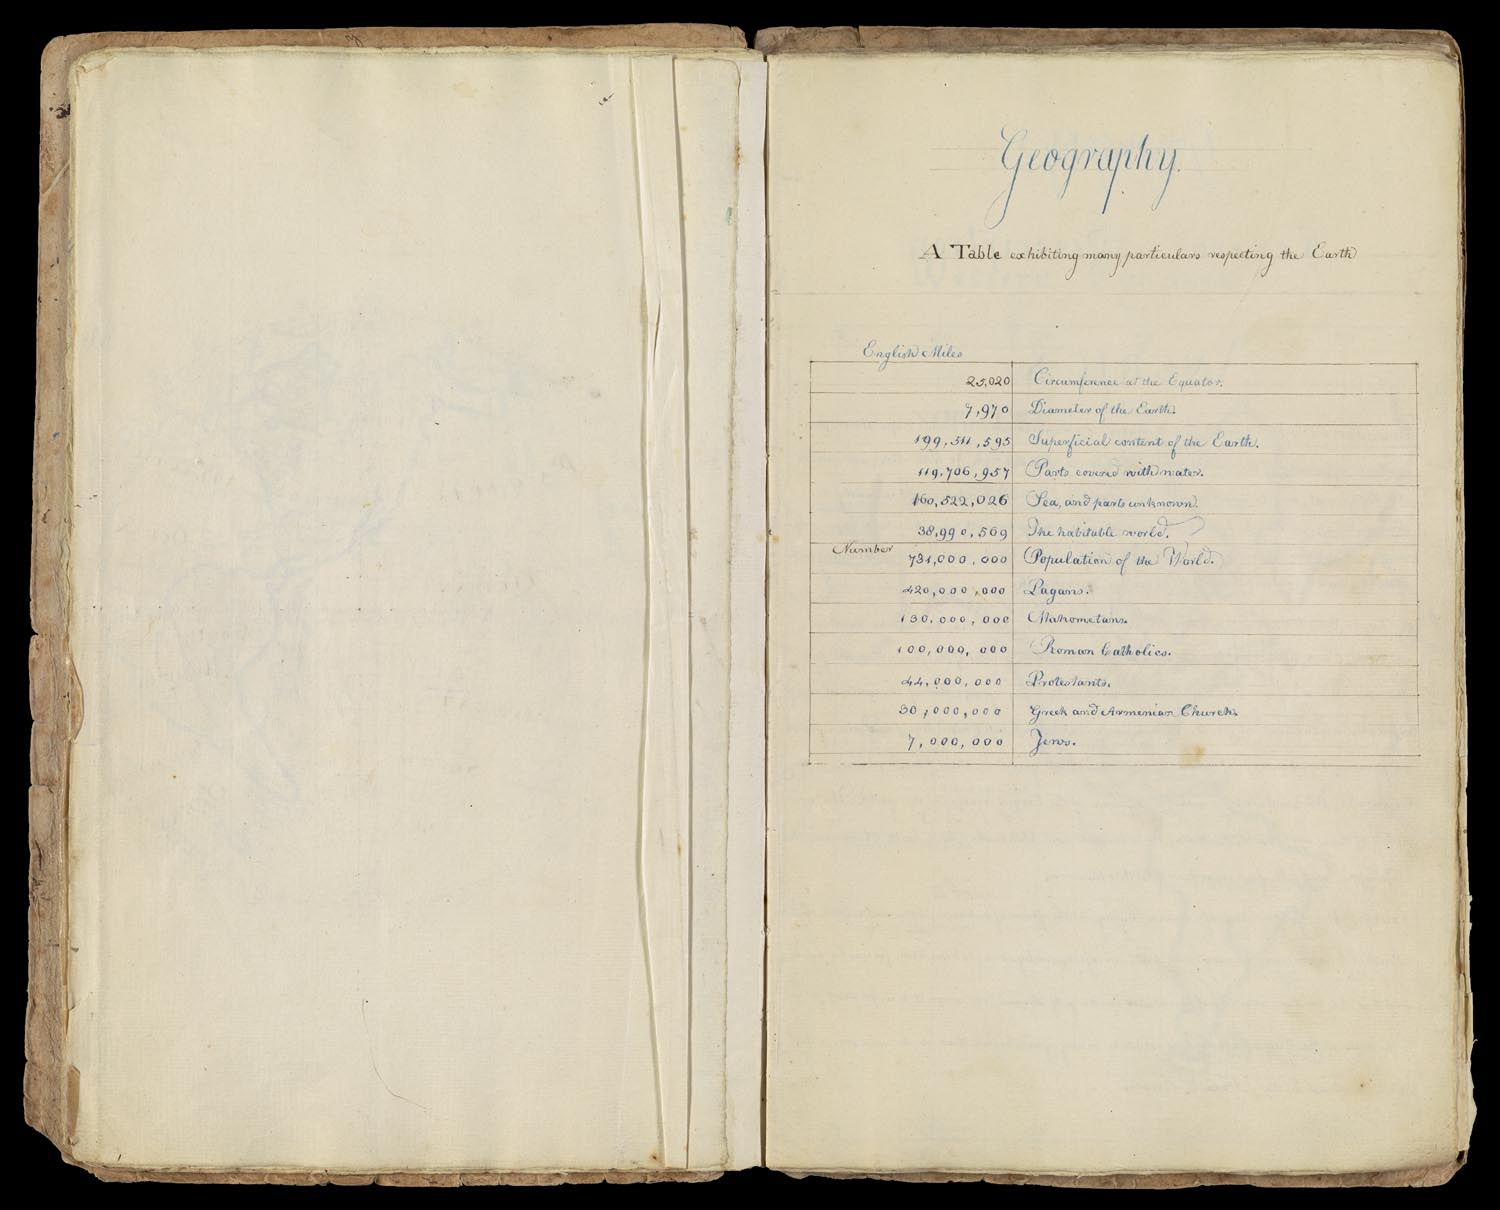 Geography.
A Table exhibiting many particulars respecting the Earth
English Miles
25,020 Circumference at the Equator.
7,970 Diameter of the Earth.
199,511,595 Superficial content of the Earth.
119,706,957 Parts covered with water.
160,522,026 Sea, and parts unknown.
38,990,569 The habitable world.
Number 731,000,000 Population of the World.
420,000,000 Pagans.
130,000,000 Mahometans.
100,000,000 Roman Catholics.
44,000,000 Protestants.
30,000,000 Greek and Armenian Church.
7,000,000 Jews.